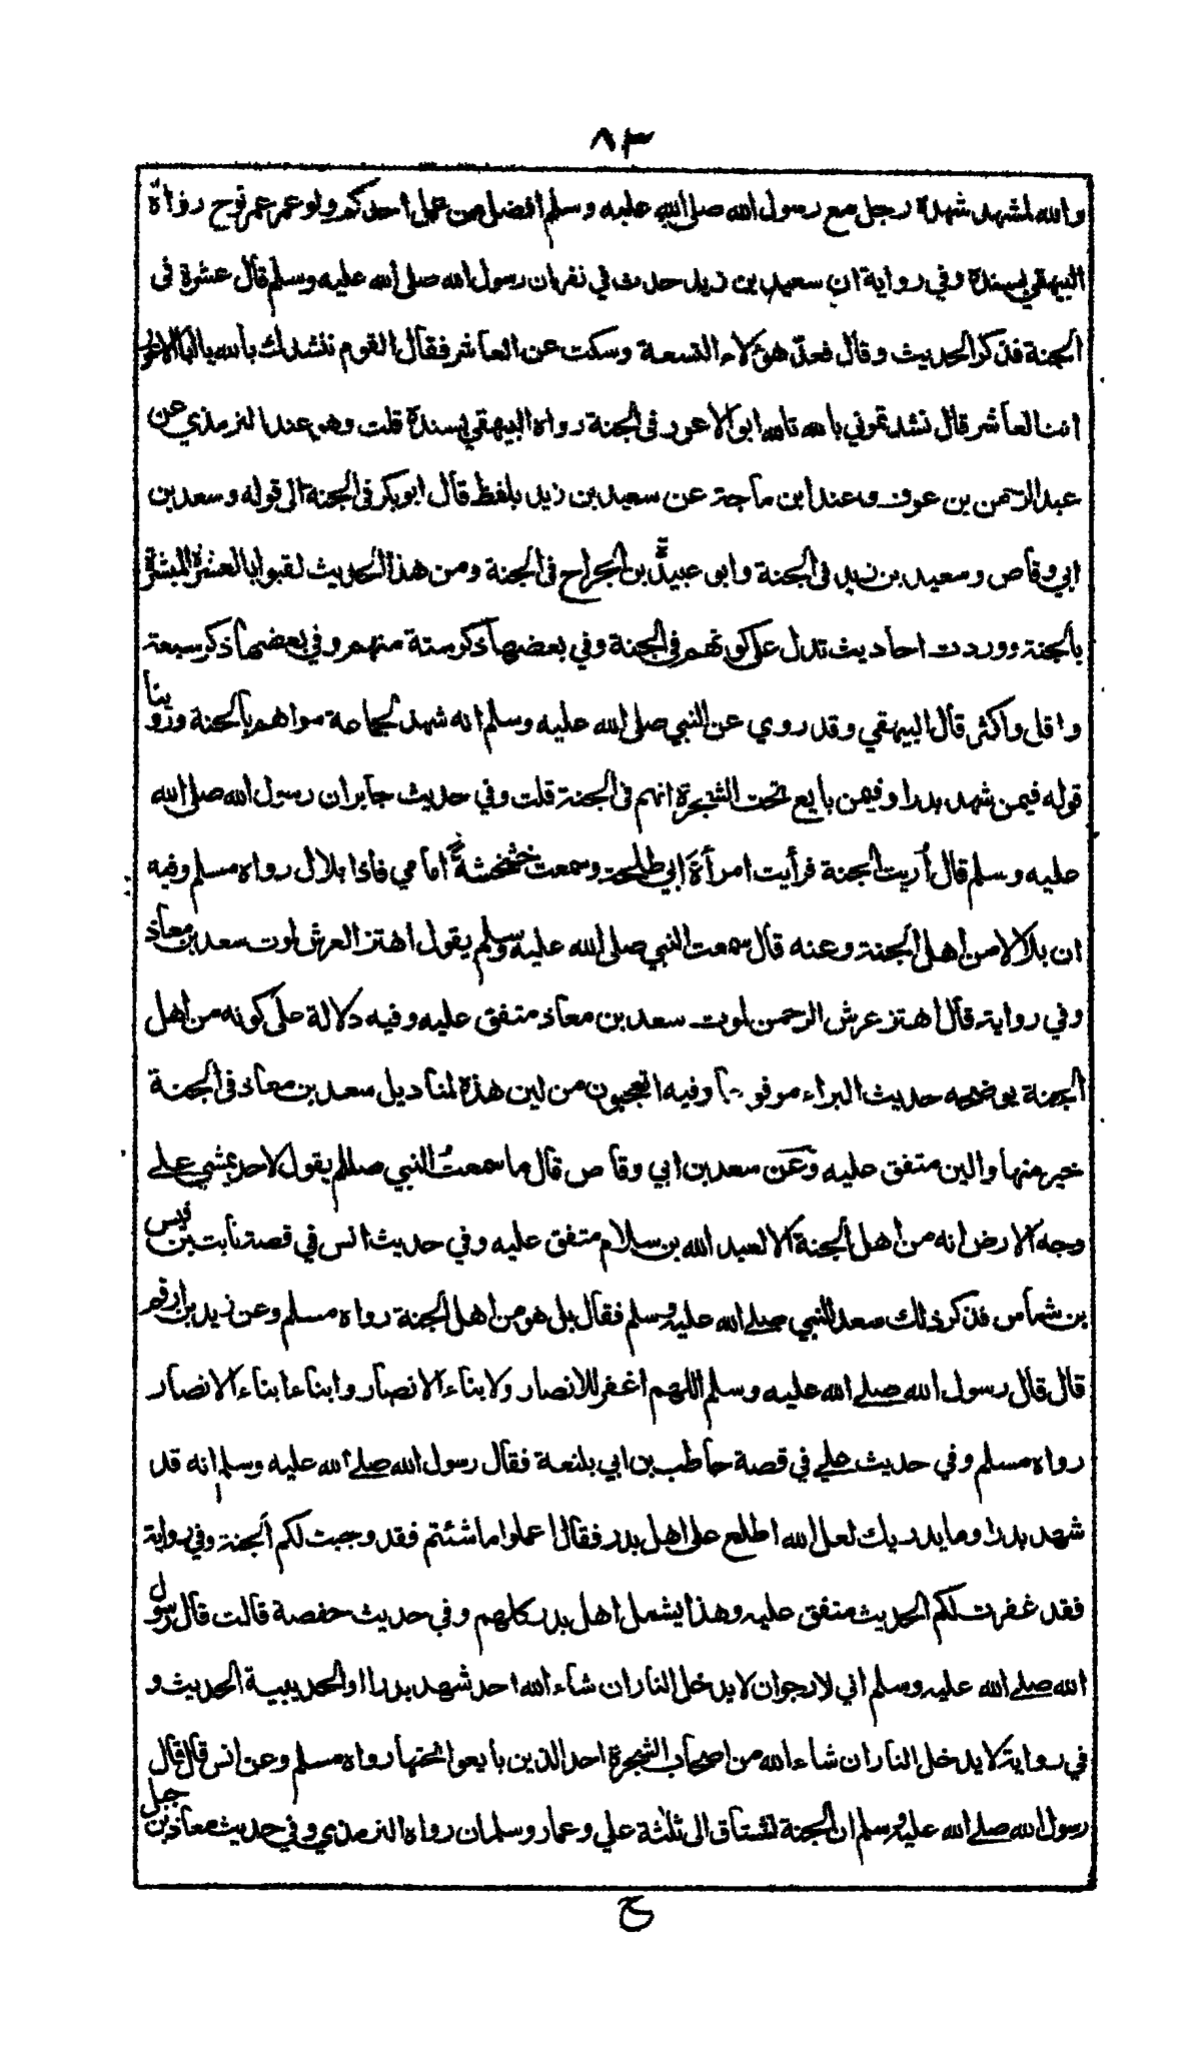 ٨٣
والله لمشهد شهده رجل مع رسول الله صلى الله عليه وسلم افضل من عمل احدكم ولو عمر عمر نوح رواه
البيهقي بسنده وفي رواية ان سعيد بن زيد حدث في نفر ان رسول الله صلى الله عليه وسلم قال عشرة في
الجنة فذكر الحديث وقال فعد هؤلاء التسعة وسكت عن العاشر فقال القوم ننشدك بالله يا ابا الاعور
انت العاشر قال نشدتموني بالله تالله ابو الاعور في الجنة رواه البيهقي بسنده قلت وهو عند الترمذي عن
عبد الرحمن بن عوف وعند ابن ماجة عن سعيد بن زيد بلفظ قال ابو بكر في الجنة الى قوله وسعد بن
ابي وقاص وسعيد بن زيد في الجنة وابو عبيدة بن الجراح في الجنة ومن هذا الحديث لقبوا بالعشرة المبشرة
بالجنة ووردت احاديث تدل على كونهم في الجنة وفي بعضها ذكر ستة منهم وفي بعضها ذكر سبعة
واقل واكثر قال البيهقي وقد روي عن النبي صلى الله عليه وسلم انه شهد لجماعة سواهم بالجنة وروينا
قوله فيمن شهد بدرا وفيمن بايع تحت الشجرة انهم في الجنة قلت وفي حديث جابر ان رسول الله صلى الله
عليه وسلم قال أريت الجنة فرأيت امرأة ابي طلحة وسمعت خشخشة امامي فاذا بلال رواه مسلم وفيه
ان بلالا من اهل الجنة وعنه قال سمعت النبي صلى الله عليه وسلم يقول اهتز العرش لموت سعد بن معاذ
وفي رواية قال اهتز عرش الرحمن لموت سعد بن معاذ متفق عليه وفيه دلالة على كونه من اهل
الجنة يوضحه حديث البراء مرفوعا وفيه اتعجبون من لين هذه لمناديل سعد بن معاذ في الجنة
خير منها والين متفق عليه وعن سعد بن ابي وقاص قال ما سمعت النبي صللم يقول لاحد يمشي على
وجه الارض انه من اهل الجنة الا لعبد الله بن سلام متفق عليه وفي حديث انس في قصة ثابت بن قيس
بن شماس فذكر ذلك سعد للنبي صلى الله عليه وسلم فقال بل هو من اهل الجنة رواه مسلم وعن زيد بن ارقم
قال قال رسول الله صلى الله عليه وسلم اللهم اغفر للانصار ولابناء الانصار وابناء ابناء الانصار
رواه مسلم وفي حديث علي في قصة حاطب بن ابي بلتعة فقال رسول الله صلى الله عليه وسلم انه قد
شهد بدرا وما يدريك لعل الله اطلع على اهل بدر فقال اعملوا ما شئتم فقد وجبت لكم الجنة وفي رواية
فقد غفرت لكم الحديث متفق عليه وهذا يشمل اهل بدر كلهم وفي حديث حفصة قالت قال رسول
الله صلى الله عليه وسلم اني لارجو ان لا يدخل النار ان شاء الله احد شهد بدرا او الحديبية الحديث و
في رواية لا يدخل النار ان شاء الله من اصحاب الشجرة احد الذين بايعوا تحتها رواه مسلم وعن انس قال قال
رسول الله صلى الله عليه وسلم ان الجنة تشتاق الى ثلثة علي وعمار وسلمان رواه الترمذي وفي حديث معاذ بن جبل
ح